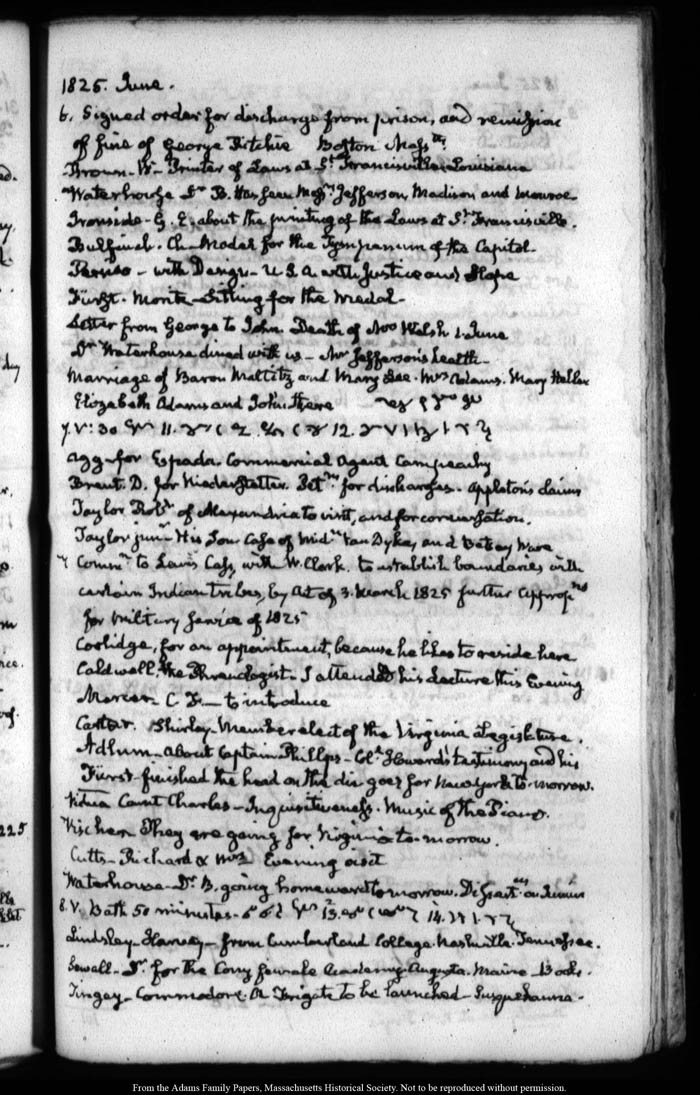 1825. June.
6. Signed order for discharge from prison, and remission
of fine of George Ritchie Boston Massts.
Brown. W— Printer of Laws at St. Francisville Louisiana
Waterhouse Dr. B. Has seen Messrs. Jefferson, Madison and Monroe.
Ironside. G. E. about the printing of the Laws at St. Francisville.
Bulfinch. Ch— Model for the Tympanum of the Capitol.
Persico— with Design— U.S.A. with Justice and Hope
Fürst. Moritz— Sitting for the Medal—
Letter from George to John. Death of Welsh 1. June
Dr. Waterhouse dined with us— Mr. Jefferson's health—
Marriage of Baron Maltitz and Mary Lee. Mrs. Adams. Mary Hellen
Elizabeth Adams and John there
7. V: 30 11. 12.
for Espada. Commercial Agent Campeachy
Brent. D. for Niederstetter. for discharges. Appleton's claims
Taylor Robt. of Alexandria to visit, and for conversation.
Taylor junr. His Son Case of Midn. Van Dyke, and Betsey Ware
Commn. to Lewis Cass, with W. Clark. to establish boundaries with
certain Indian tribes, by Act of 3. March 1825 further appropns
for Military Service of 1825
Coolidge, for an appointment, because he likes to reside here
Caldwell, the Phrenologist. I attended his Lecture this Evening
Mercer C. F.— to introduce
Carter. Shirley Member elect of the Virginia Legislature.
Adlum— about Captain Phillips— Col. Howard's testimony and his
Fürst finished the head on the die goes for New York to-morrow.
Vidua Count Charles— Inquisitiveness. Music of the Piano.
They are going for Virginia to-morrow.
Cutts— Richard & Mrs. Evening visit
Waterhouse— Dr. B. going homeward to-morrow. on Junius
8. V. Bath 50 minutes. 13. 14.
Lindsley— from Cumberland College. Nashville. Tennessee.
Sewall— Dr. for the Cony female Academy Augusta. Maine— Books.
Tingey— Commodore. A Frigate to be launched— Susquehanna.
From the Adams Family Papers, Massachusetts Historical Society. Not to be reproduced without permission.